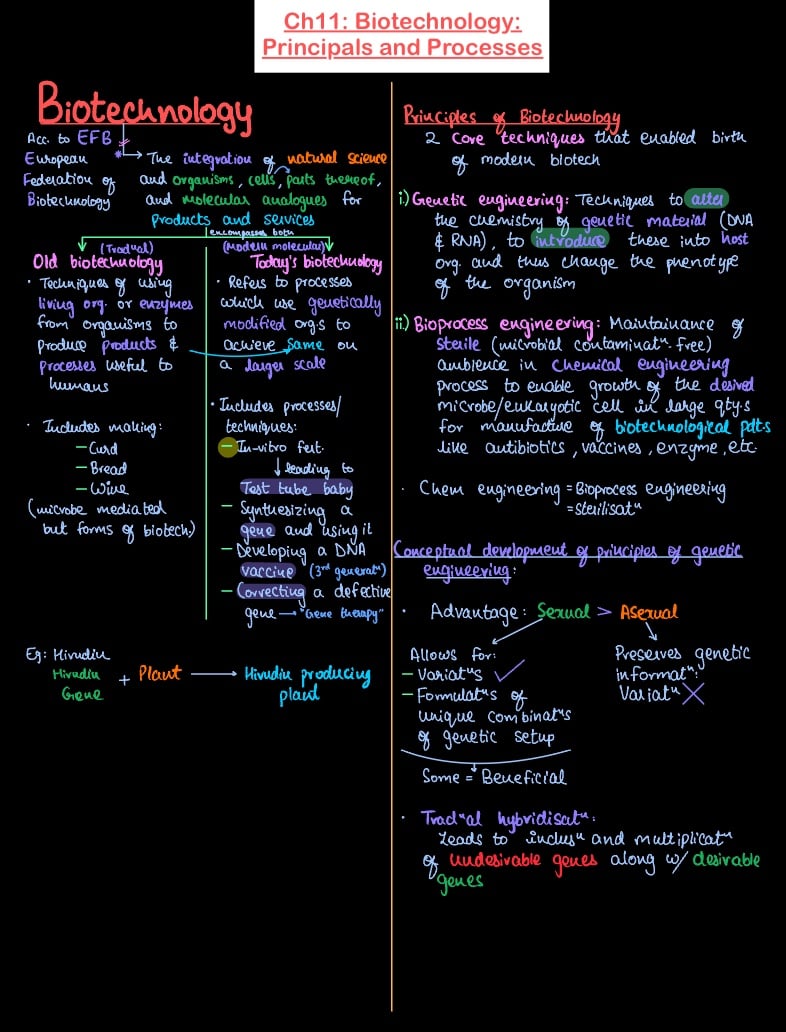 Ch11: Biotechnology:
Principals and Processes
Biotechnology
Acc. to EFB
European
Federation of
Biotechnology
* → The integration of natural science
and organisms, cells, parts thereof,
and molecular analogues for
products and services
encompasses both
(Tradual)
Old biotechnology
· Techniques of using
living org. or enzymes
from organisms to
produce products &
processes useful to
humans
· Includes making:
– Curd
– Bread
– Wine
(microbe mediated
but forms of biotech.)
(Modern molecular)
Today's biotechnology
· Refers to processes
which use genetically
modified orgs to
achieve same on
a larger scale
· Includes processes/
techniques:
– In-vitro fert.
↓ leading to
Test tube baby
– Synthesizing a
gene and using it
– Developing a DNA
vaccine (3rd generatⁿ)
– Correcting a defective
gene → "Gene therapy"
Eg: Hirudin
Hirudin
Gene + Plant → Hirudin producing
plant
Principles of Biotechnology
2 core techniques that enabled birth
of modern biotech
i) Genetic engineering: Techniques to alter
the chemistry of genetic material (DNA
& RNA), to introduce these into host
org. and thus change the phenotype
of the organism
ii) Bioprocess engineering: Maintainance of
sterile (microbial contaminatⁿ. free)
ambience in chemical engineering
process to enable growth of the desired
microbe/eukaryotic cell in large qty.s
for manufacture of biotechnological pdts
like antibiotics, vaccines, enzyme, etc.
· Chem engineering = Bioprocess engineering
= sterilisatⁿ
Conceptual development of principles of genetic
engineering:
· Advantage: Sexual > Asexual
Allows for:
– Variatⁿs ✓
– Formulatⁿs of
unique combinatⁿs
of genetic setup
Some = Beneficial
Preserves genetic
informatⁿ.
Variatⁿ ✗
· Tradⁿal hybridisatⁿ:
Leads to inclusⁿ and multiplicatⁿ
of undesirable genes along w/ desirable
genes